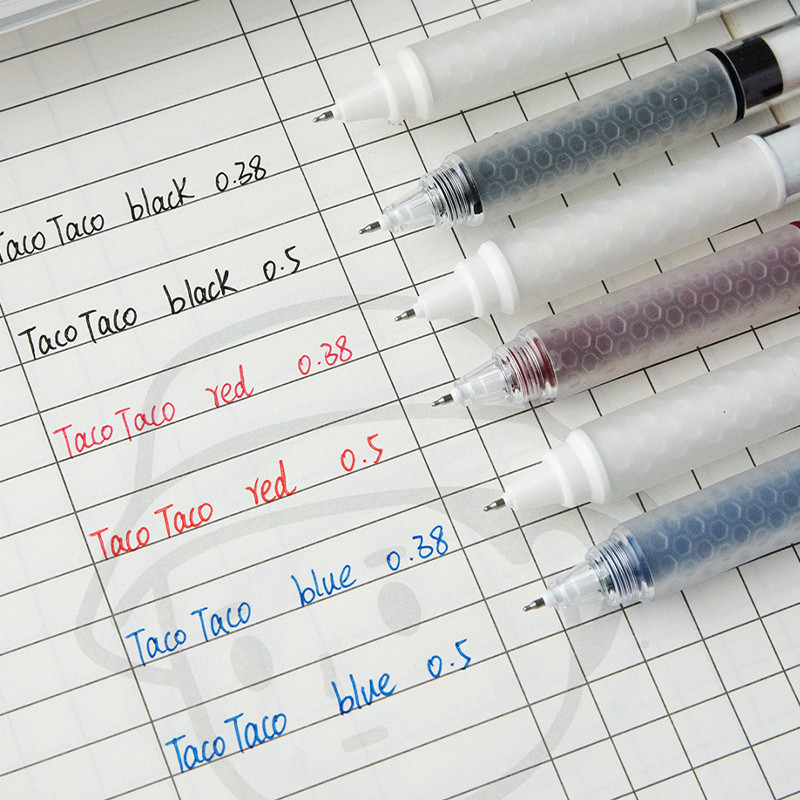 Taco Taco black 0.38
Taco Taco black 0.5
Taco Taco red 0.38
Taco Taco red 0.5
Taco Taco blue 0.38
Taco Taco blue 0.5